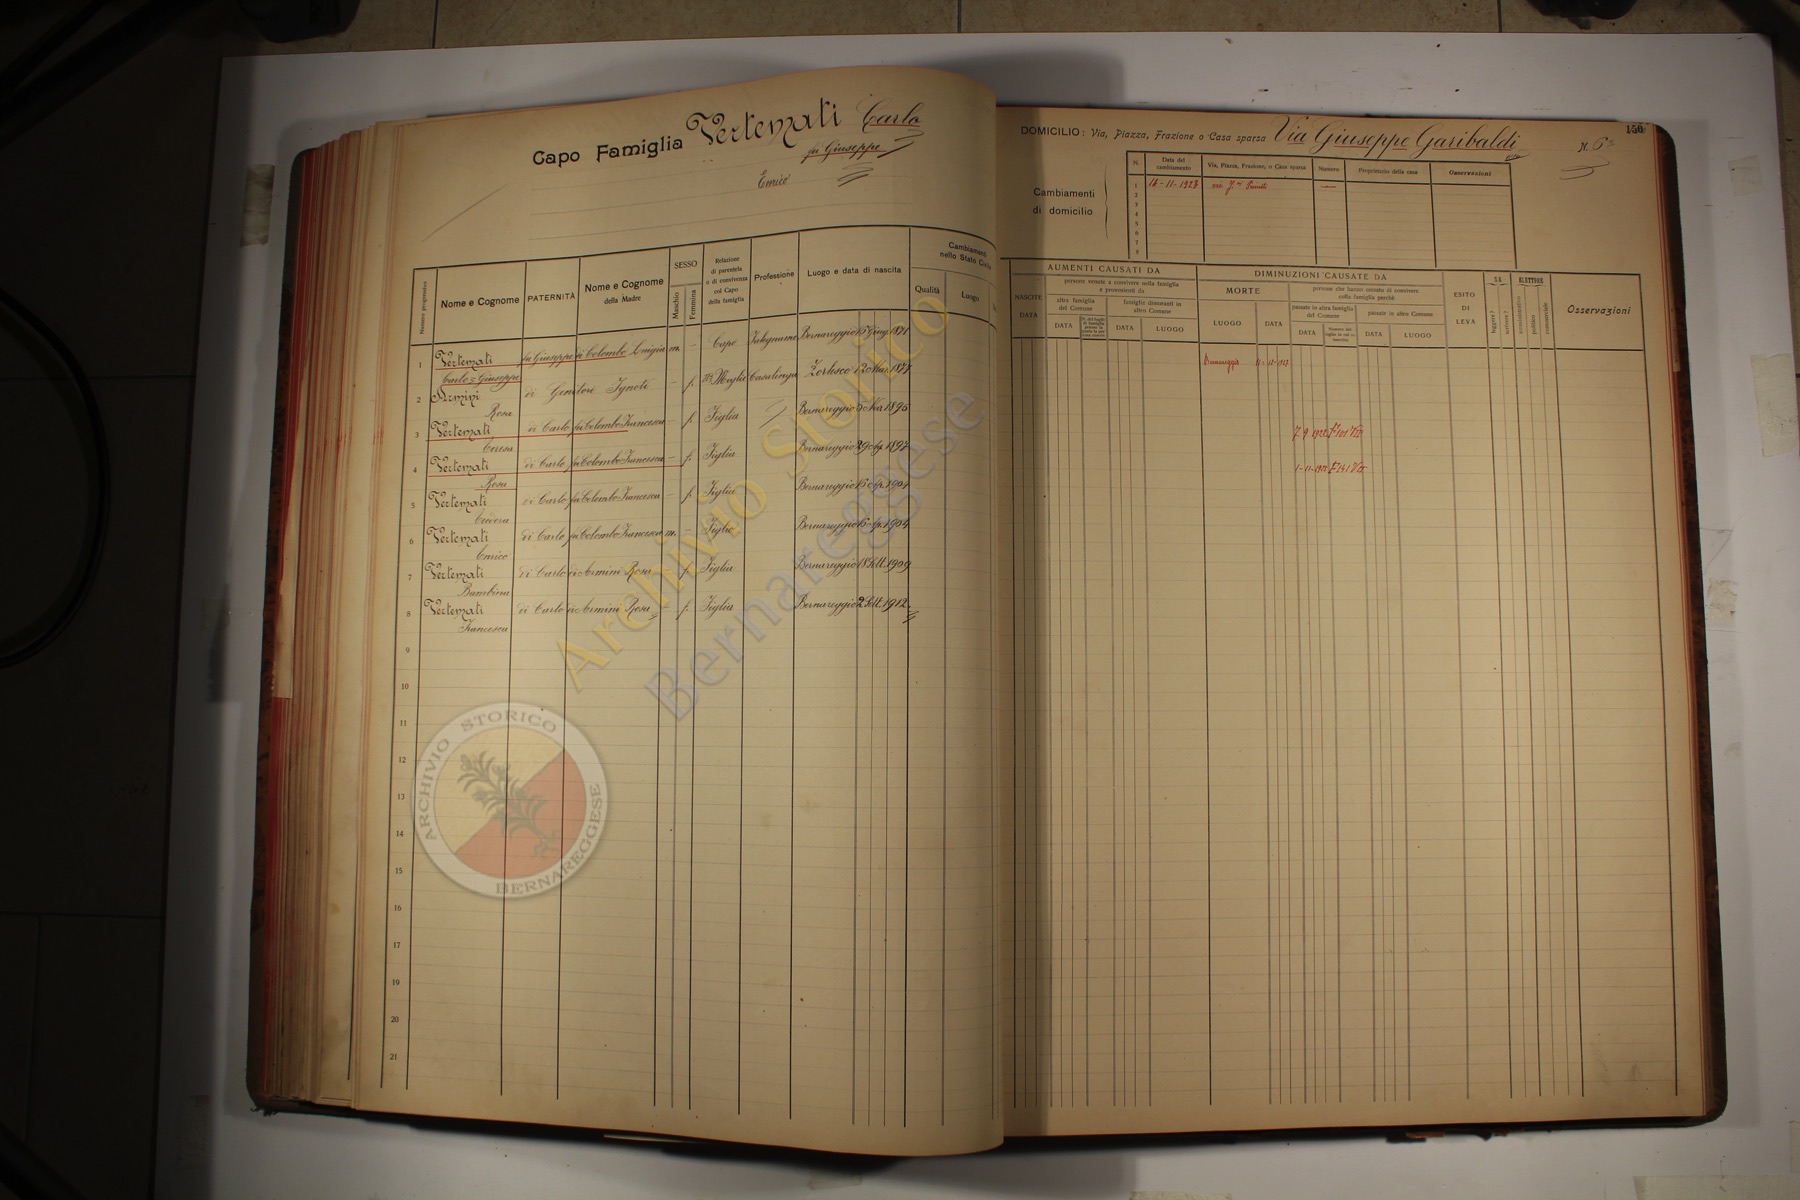 Capo Famiglia Vertemati Carlo
fu Giuseppe
Enrico
Numero progressivo
Nome e Cognome
PATERNITÀ
Nome e Cognome
della Madre
SESSO
Maschio
Femmina
Relazione
di parentela
o di convivenza
col Capo
della famiglia
Professione
Luogo e data di nascita
Cambiamenti
nello Stato Civile
Qualità
Luogo
1 Vertemati fu Giuseppe di Colombo Luigia m. – Capo Falegname Bernareggio 15 Giug. 1871
Carlo = Giuseppe
2 Armini di Genitori Ignoti – f. Moglie Casalinga 1877
Rosa
3 Vertemati di Carlo fu Colombo Francesca – f. Figlia Bernareggio 1895
Teresa
4 Vertemati di Carlo fu Colombo Francesca – f. Figlia Bernareggio 1897
Rosa
5 Vertemati di Carlo fu Colombo Francesca – f. Figlia Bernareggio 1904
6 Vertemati di Carlo fu Colombo Francesca m. – Figlio Bernareggio 1904
Enrico
7 Vertemati di Carlo di Armini Rosa – f. Figlia Bernareggio 18 Sett. 1909
Bambina
8 Vertemati di Carlo di Armini Rosa – f. Figlia Bernareggio 2 Sett. 1912
Francesca
9
10
11
12
13
14
15
16
17
18
19
20
21
150
DOMICILIO: Via, Piazza, Frazione o Casa sparsa Via Giuseppe Garibaldi N. 6
Cambiamenti
di domicilio
N.
Data del
cambiamento
Via, Piazza, Frazione, o Casa sparsa
Numero
Proprietario della casa
Osservazioni
1
2
3
4
5
6
7
8
AUMENTI CAUSATI DA
NASCITE
DATA
persone venute a convivere nella famiglia
e provenienti da
altra famiglia
del Comune
DATA
famiglie dimoranti in
altro Comune
DATA
LUOGO
DIMINUZIONI CAUSATE DA
MORTE
LUOGO
DATA
persone che hanno cessato di convivere
colla famiglia perchè
passate in altra famiglia
del Comune
DATA
passate in altro Comune
DATA
LUOGO
ESITO
DI
LEVA
SA
leggere?
scrivere?
ELETTORE
amministrativo
politico
commerciale
Osservazioni
Bernareggio
Archivio Storico
Bernareggese
ARCHIVIO STORICO
BERNAREGGESE